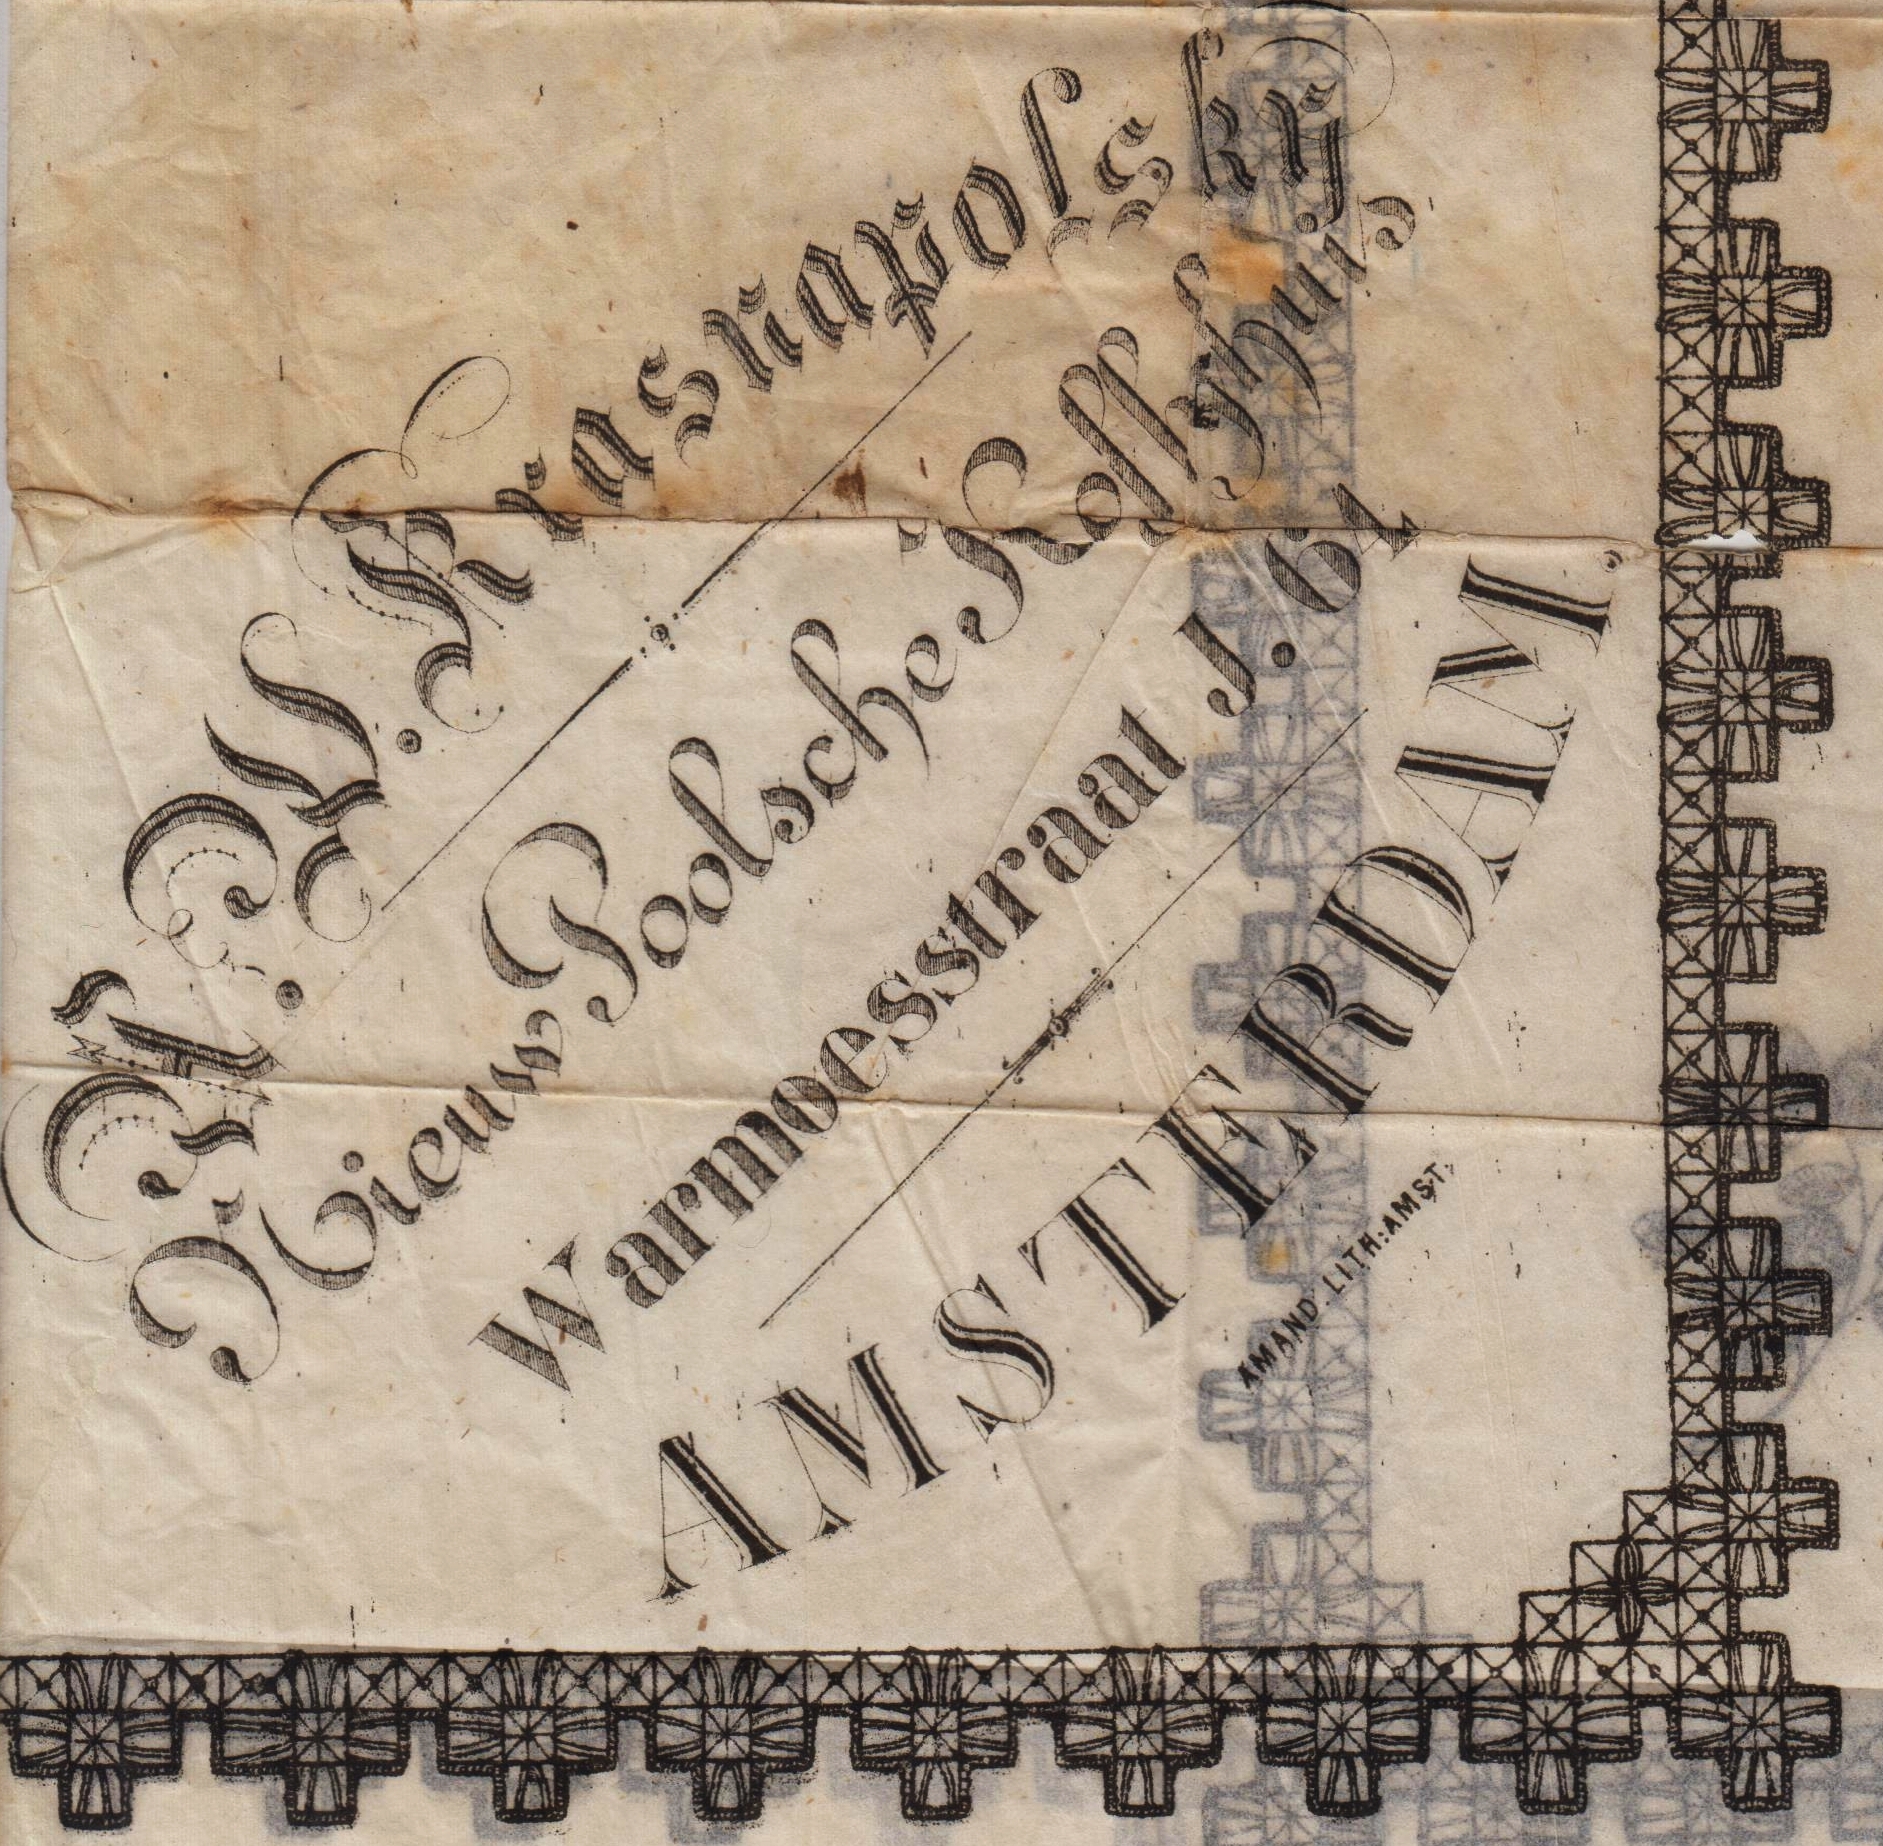 A. W. Krasnapolsky
Nieuw Poolsche Koffyhuis
Warmoesstraat J. 61
AMSTERDAM.
AMAND. LITH: AMST: